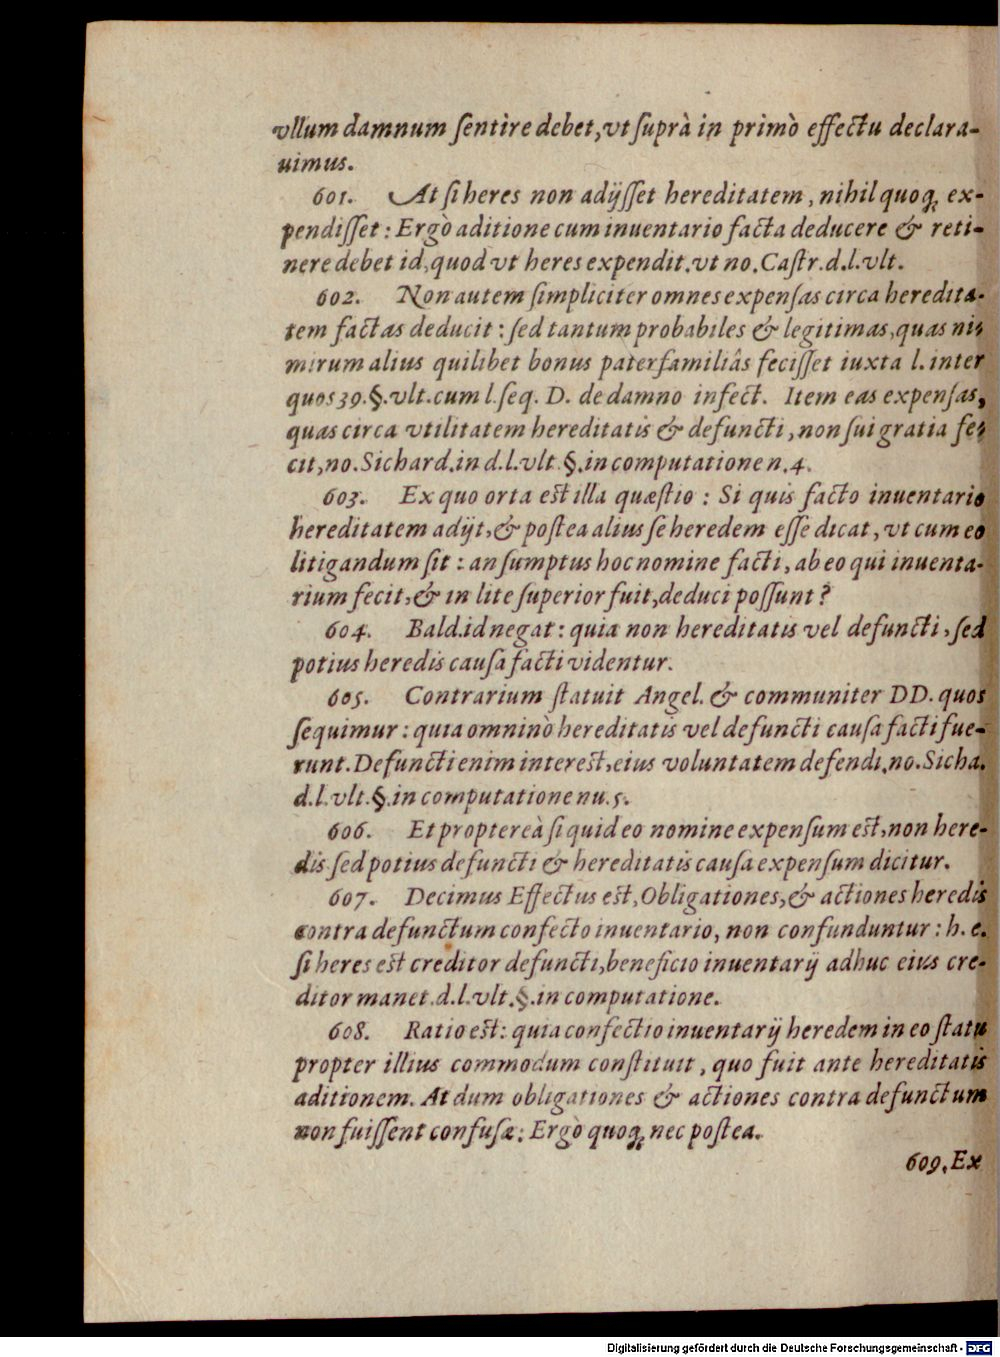 vllum damnum ſentire debet, vt ſuprà in primò effectu declara-
uimus.
601. At ſi heres non adijſſet hereditatem, nihil quoq; ex-
pendiſſet: Ergò aditione cum inuentario facta deducere & reti-
nere debet id, quod vt heres expendit. vt no. Caſtr. d. l. vlt.
602. Non autem ſimpliciter omnes expenſas circa heredita-
tem factas deducit: ſed tantum probabiles & legitimas, quas ni-
mirum alius quilibet bonus paterfamiliâs feciſſet iuxta l. inter
quos 39. §. vlt. cum l. ſeq. D. de damno infect. Item eas expenſas,
quas circa vtilitatem hereditatis & defuncti, non ſui gratia fe-
cit, no. Sichard. in d. l. vlt. §. in computatione n. 4.
603. Ex quo orta eſt illa quæſtio: Si quis facto inuentario
hereditatem adijt, & poſtea alius ſe heredem eſſe dicat, vt cum eo
litigandum ſit: an ſumptus hoc nomine facti, ab eo qui inuenta-
rium fecit, & in lite ſuperior fuit, deduci poſſunt?
604. Bald. id negat: quia non hereditatis vel defuncti, ſed
potius heredis cauſa facti videntur.
605. Contrarium ſtatuit Angel. & communiter DD. quos
ſequimur: quia omninò hereditatis vel defuncti cauſa facti fue-
runt. Defuncti enim intereſt, eius voluntatem defendi. no. Sicha.
d. l. vlt. §. in computatione nu. 5.
606. Et proptereà ſi quid eo nomine expenſum eſt, non here-
dis ſed potius defuncti & hereditatis cauſa expenſum dicitur.
607. Decimus Effectus eſt, Obligationes, & actiones heredis
contra defunctum confecto inuentario, non confunduntur: h. e.
ſi heres eſt creditor defuncti, beneficio inuentarij adhuc eius cre-
ditor manet. d. l. vlt. §. in computatione.
608. Ratio eſt: quia confectio inuentarij heredem in eo ſtatu
propter illius commodum conſtituit, quo fuit ante hereditatis
aditionem. At dum obligationes & actiones contra defunctum
non fuiſſent confuſæ: Ergò quoq; nec poſtea.
609. Ex
Digitalisierung gefördert durch die Deutsche Forschungsgemeinschaft - DFG